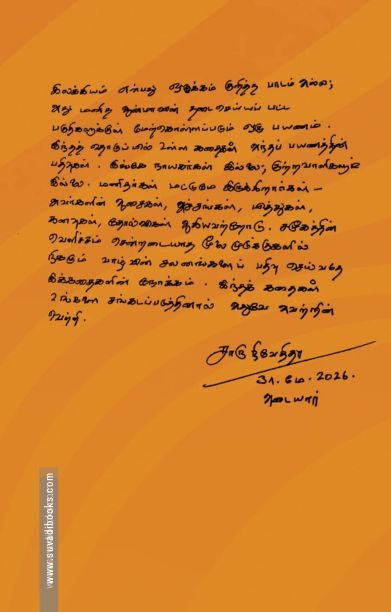 இலக்கியம் என்பது ஒழுக்கம் குறித்த பாடம் அல்ல;
அது மனித ஆன்மாவின் தடைசெய்யப் பட்ட
பகுதிகளுக்குள் மேற்கொள்ளப்படும் ஒரு பயணம்.
இந்தத் தொகுப்பில் உள்ள கதைகள் அந்தப் பயணத்தின்
பதிவுகள். இங்கே நாயகர்கள் இல்லை; குற்றவாளிகளும்
இல்லை. மனிதர்கள் மட்டுமே இருக்கிறார்கள் –
அவர்களின் ஆசைகள், அச்சங்கள், பித்துகள்,
கனவுகள், தோல்விகள் ஆகியவற்றோடு. சமூகத்தின்
வெளிச்சம் சென்றடையாத மூலை முடுக்குகளில்
நிகழும் வாழ்வின் சலனங்களைப் பதிவு செய்வதே
இக்கதைகளின் நோக்கம். இந்தக் கதைகள்
உங்களை சங்கடப்படுத்தினால் அதுவே அவற்றின்
வெற்றி.
சாரு நிவேதிதா
31. மே. 2026.
அடையார்
www.suvadibooks.com